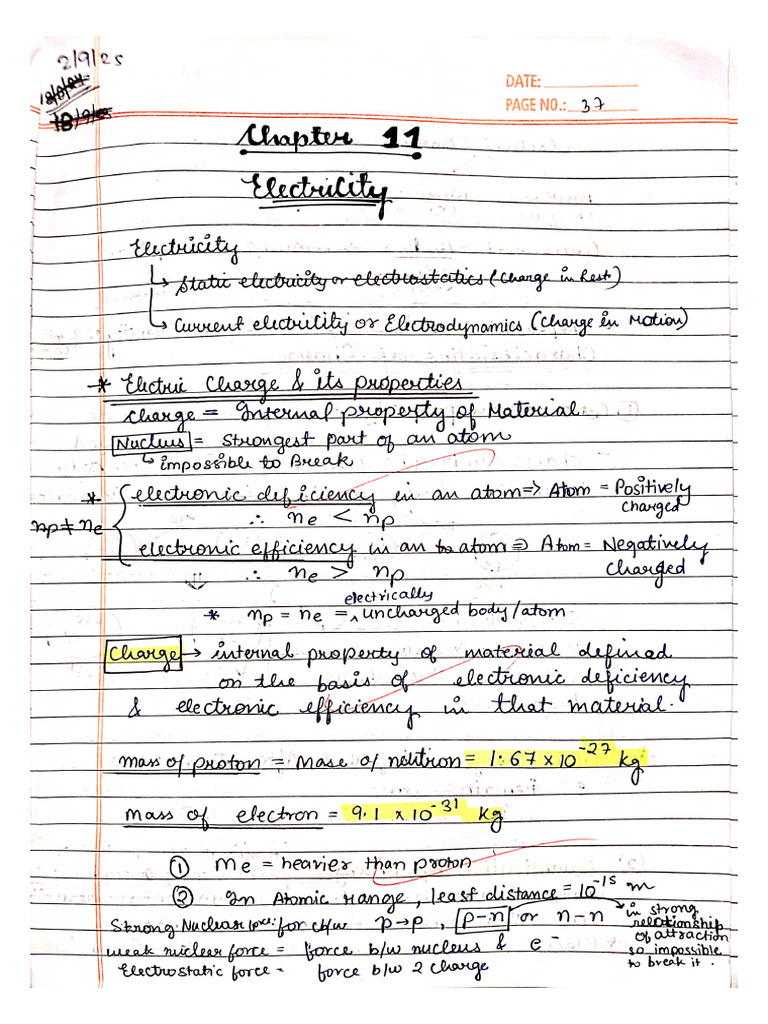 2/9/25
DATE:
PAGE NO.: 37
Chapter 11
Electricity
Electricity
↳ Static electricity or electrostatics (Charge in Rest)
↳ Current electricity or Electrodynamics (Charge in Motion)
* Electric Charge & its properties
Charge = Internal property of Material
Nucleus = Strongest part of an atom
↳ impossible to Break
* electronic deficiency in an atom => Atom = Positively charged
np ≠ ne
∴ ne < np
electronic efficiency in an atom => Atom = Negatively Charged
∴ ne > np
* np = ne = electrically uncharged body/atom
Charge → internal property of material defined
on the basis of electronic deficiency
& electronic efficiency in that material.
mass of proton = Mass of neutron = 1.67 x 10^-27 kg
mass of electron = 9.1 x 10^-31 kg
① Me = heavier than proton
② In Atomic range, least distance = 10^-15 m
Strong Nuclear force: for ch/w p→p, p-n or n-n → in strong
relationship
of attraction
so impossible
to break it.
weak nuclear force = force b/w nucleus & e-
Electrostatic force = force b/w 2 charge